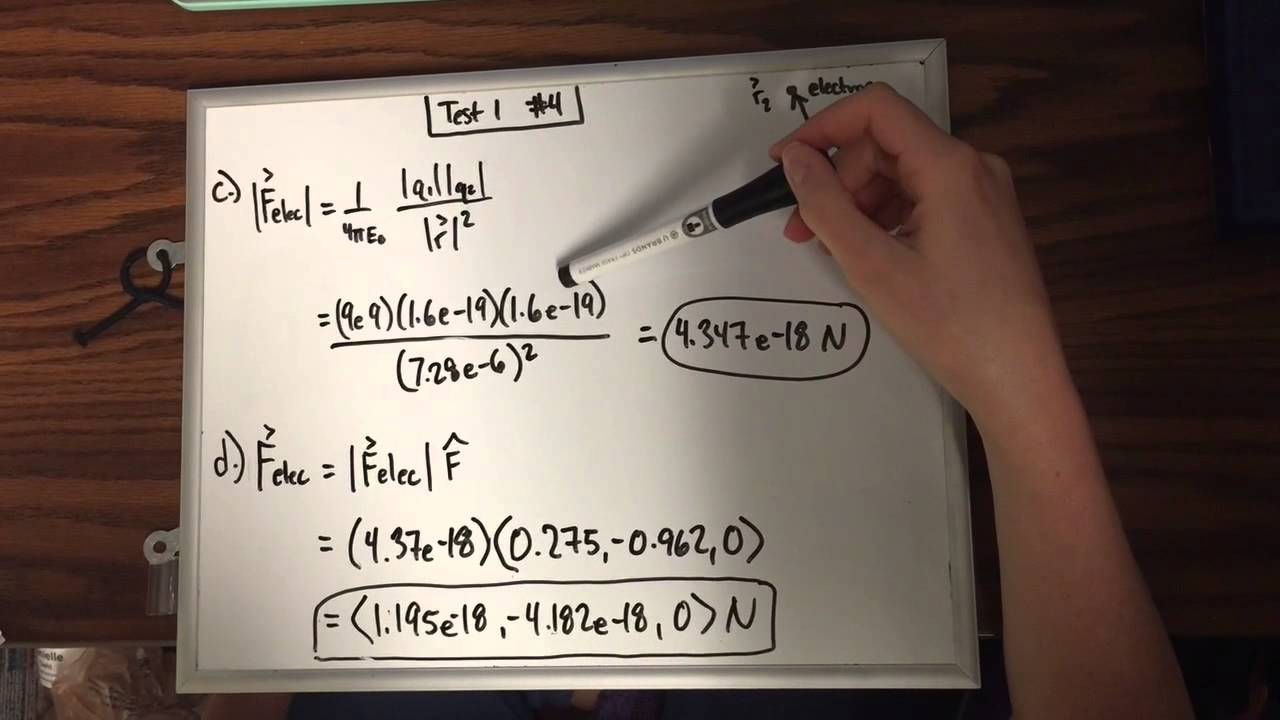 Test 1 #4
r⃗₂ electro
c.) |F⃗elec| = 1/4πE₀ |q₁||q₂|/|r⃗|²
= (9e9)(1.6e-19)(1.6e-19)/(7.28e-6)² = 4.347e-18 N
d.) F⃗elec = |F⃗elec| F̂
= (4.37e-18)⟨0.275, -0.962, 0⟩
= ⟨1.195e-18, -4.182e-18, 0⟩ N
U BRANDS